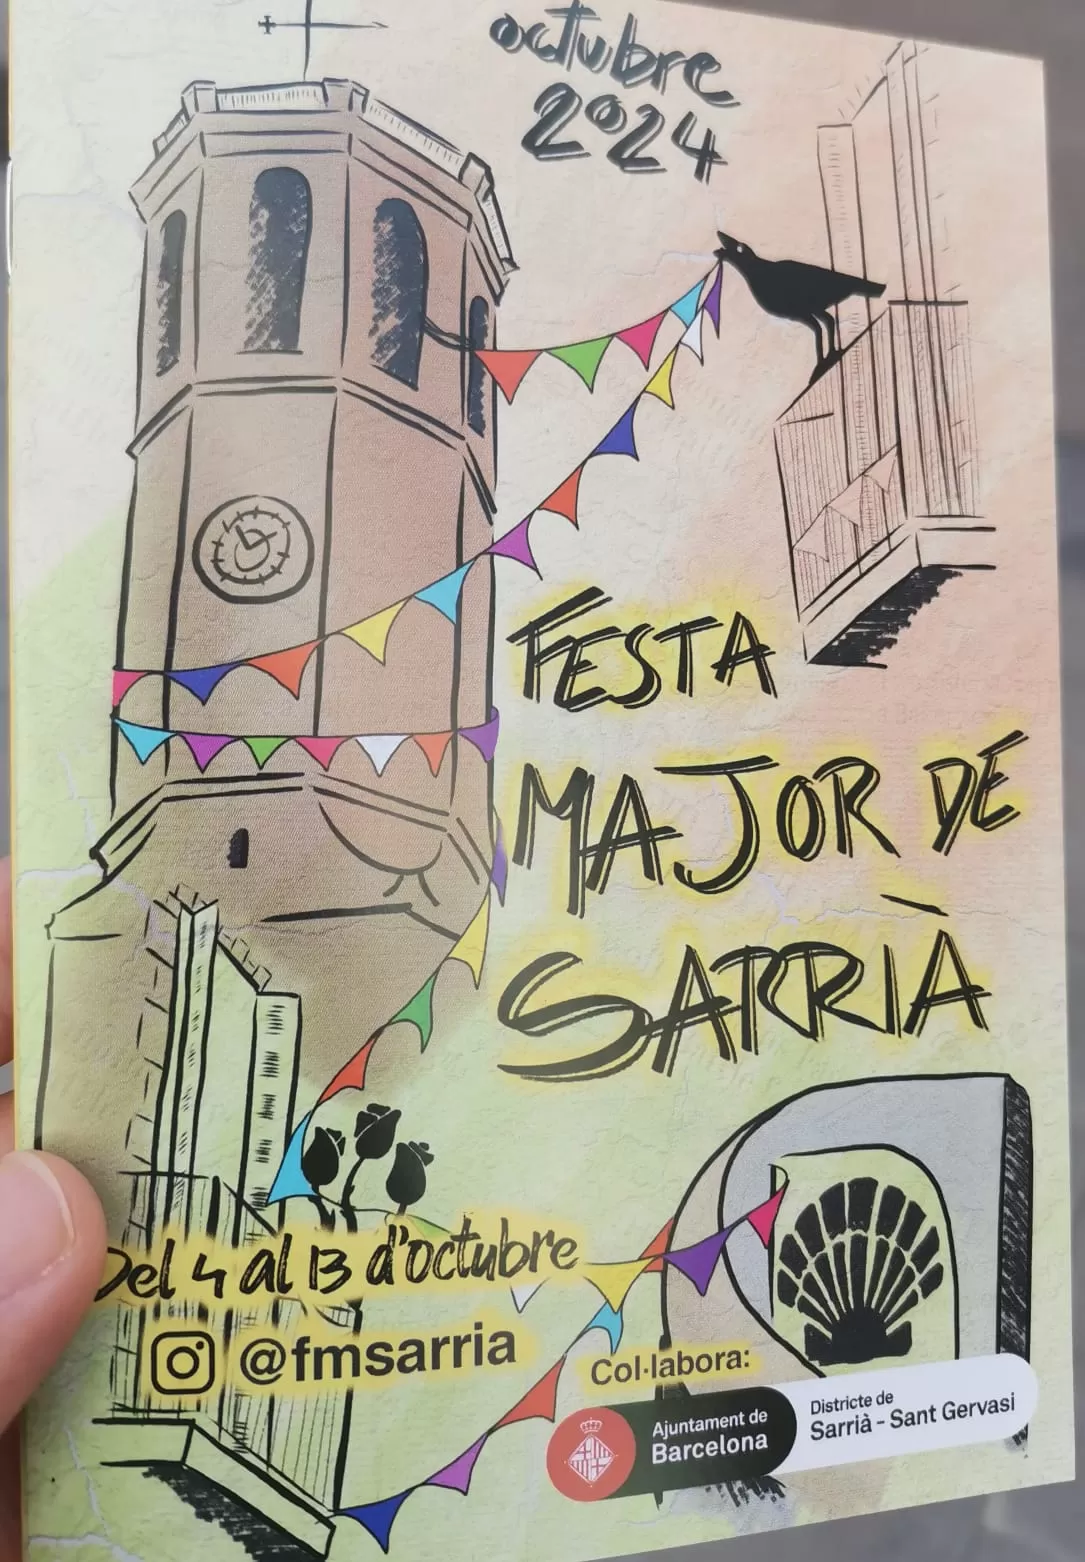 octubre
2024
FESTA
MAJOR DE
SARRIÀ
Del 4 al 13 d'octubre
@fmsarria
Col·labora:
Ajuntament de
Barcelona
Districte de
Sarrià - Sant Gervasi